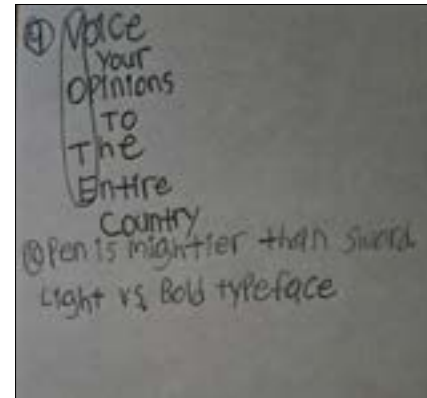 ⑨ Voice
Your
Opinions
To
The
Entire
Country
⑩ Pen is mightier than sword
Light vs Bold typeface